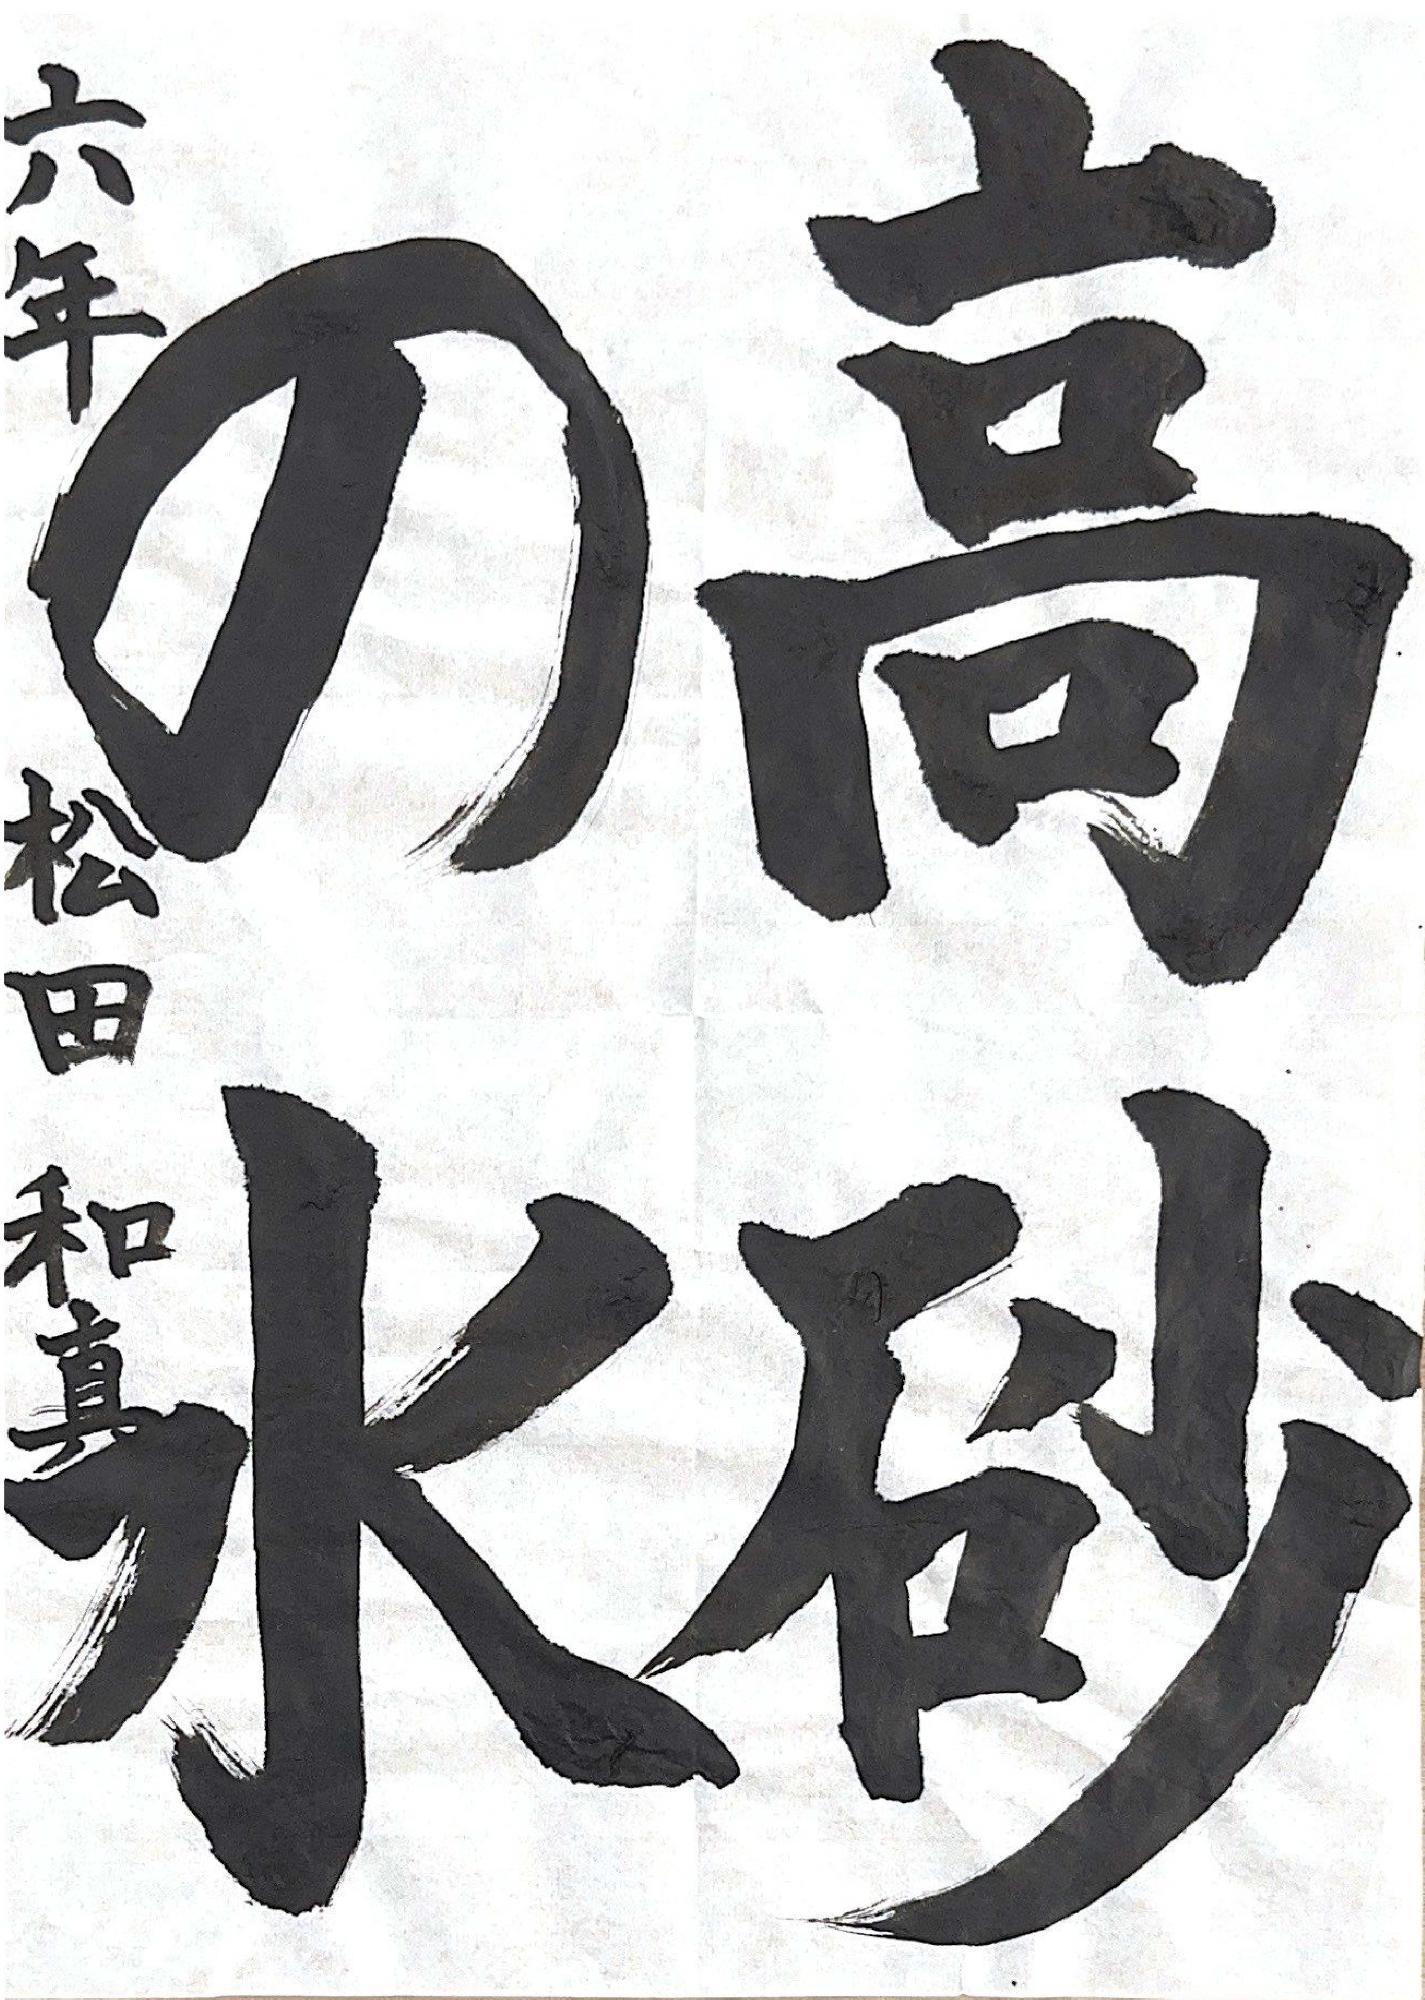 高砂
の水
六年 松田 和真